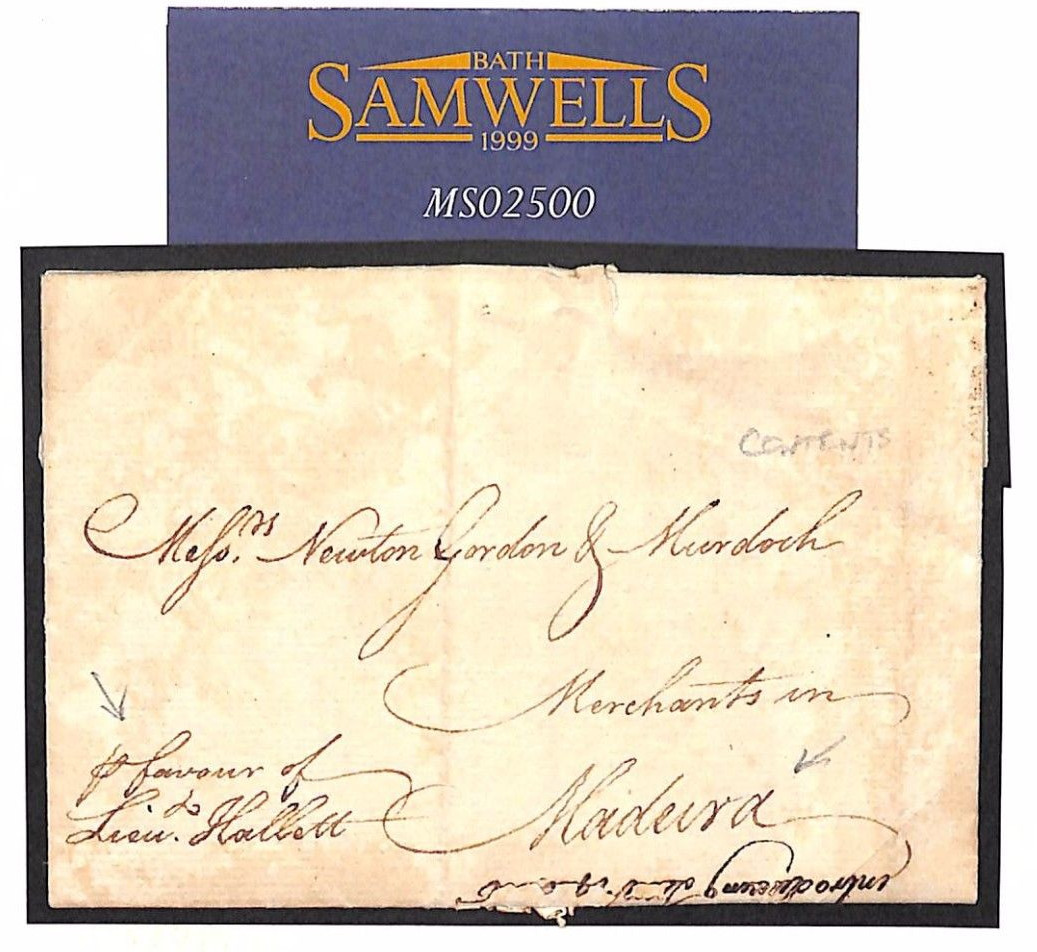 BATH
SAMWELLS
1999
MS02500
CONTENTS
Messrs. Newton Gordon & Murdoch
Merchants in
Madeira
p favour of
Lieut. Hallett
introducing